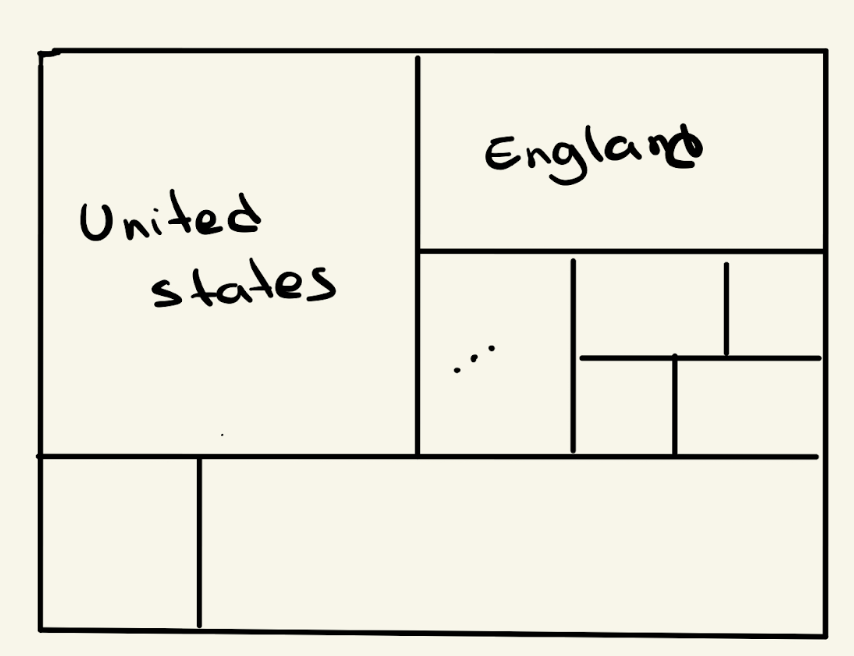 United
states
England
...